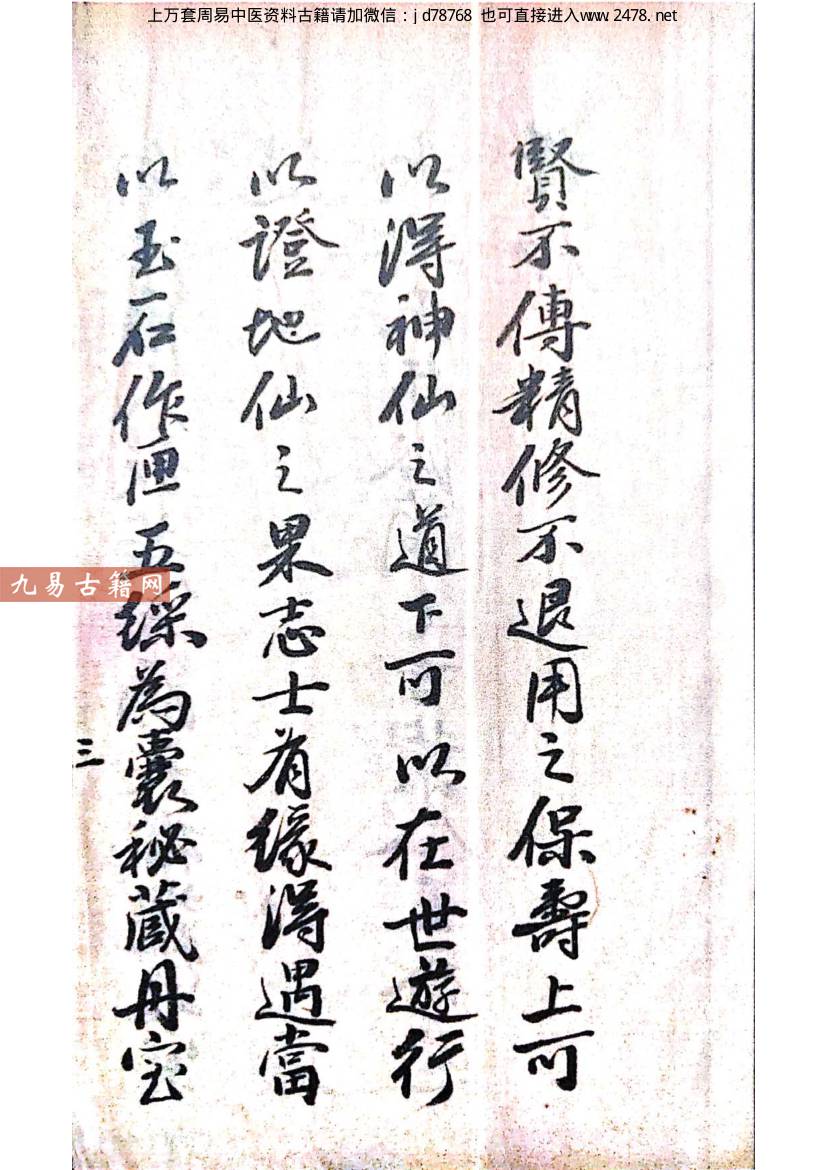 上万套周易中医资料古籍请加微信：jd78768 也可直接进入www.2478.net
賢不傳精修不退用之保壽上可
以得神仙之道下可以在世遊行
以證地仙之果志士有緣得遇當
以玉石作匣五綵為囊秘藏丹宝
三
九易古籍网